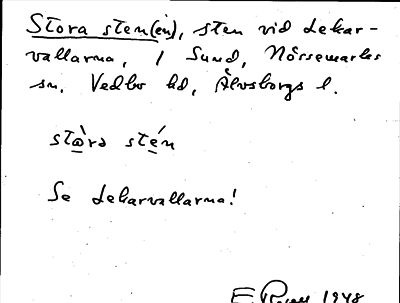 Stora sten(en), sten vid Lekar-
vallarna, 1 Sund, Nössemarks
sn, Vedbo hd, Älvsborgs l.
stòra stén
Se Lekarvallarna!
E. 1948